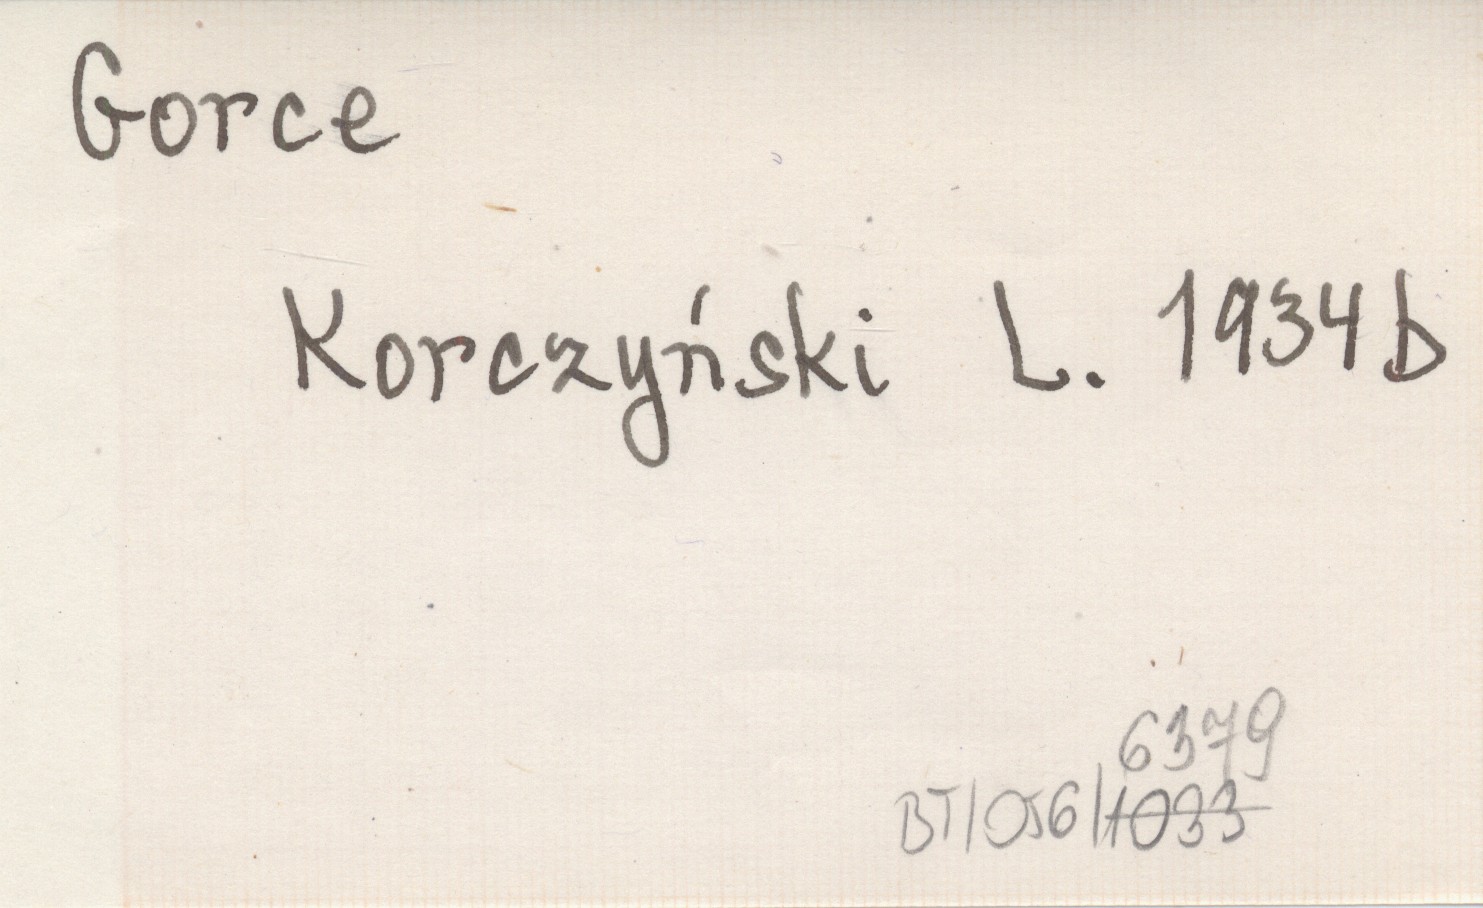 Gorce
Korczyński L. 1934b
6379
BT/056/1033